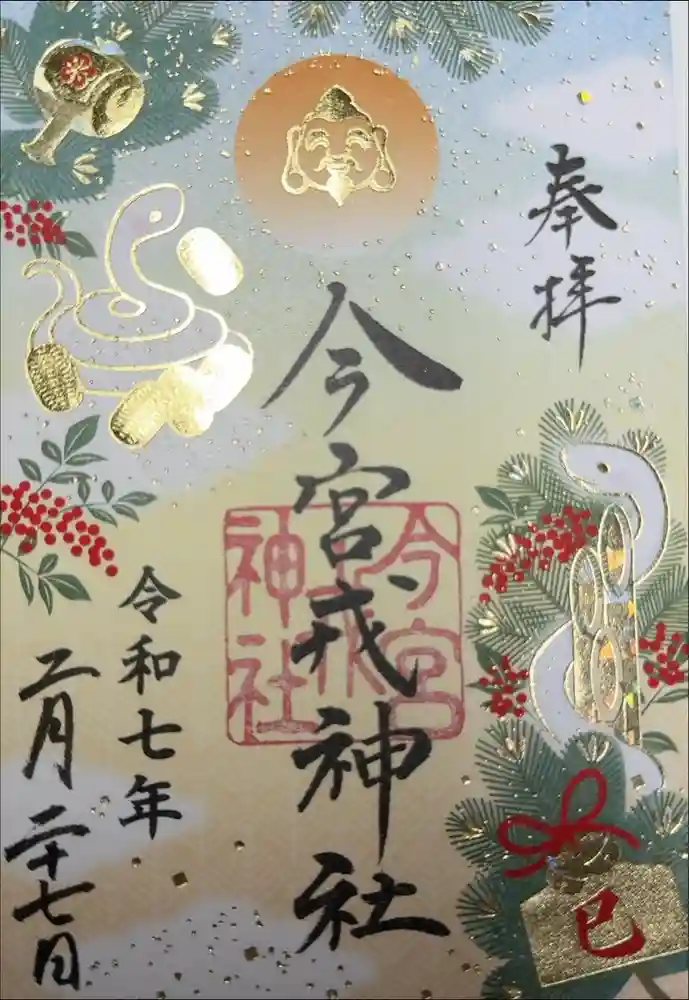 奉拝
今宮戎神社
今宮戎神社
令和七年
二月二十七日
巳